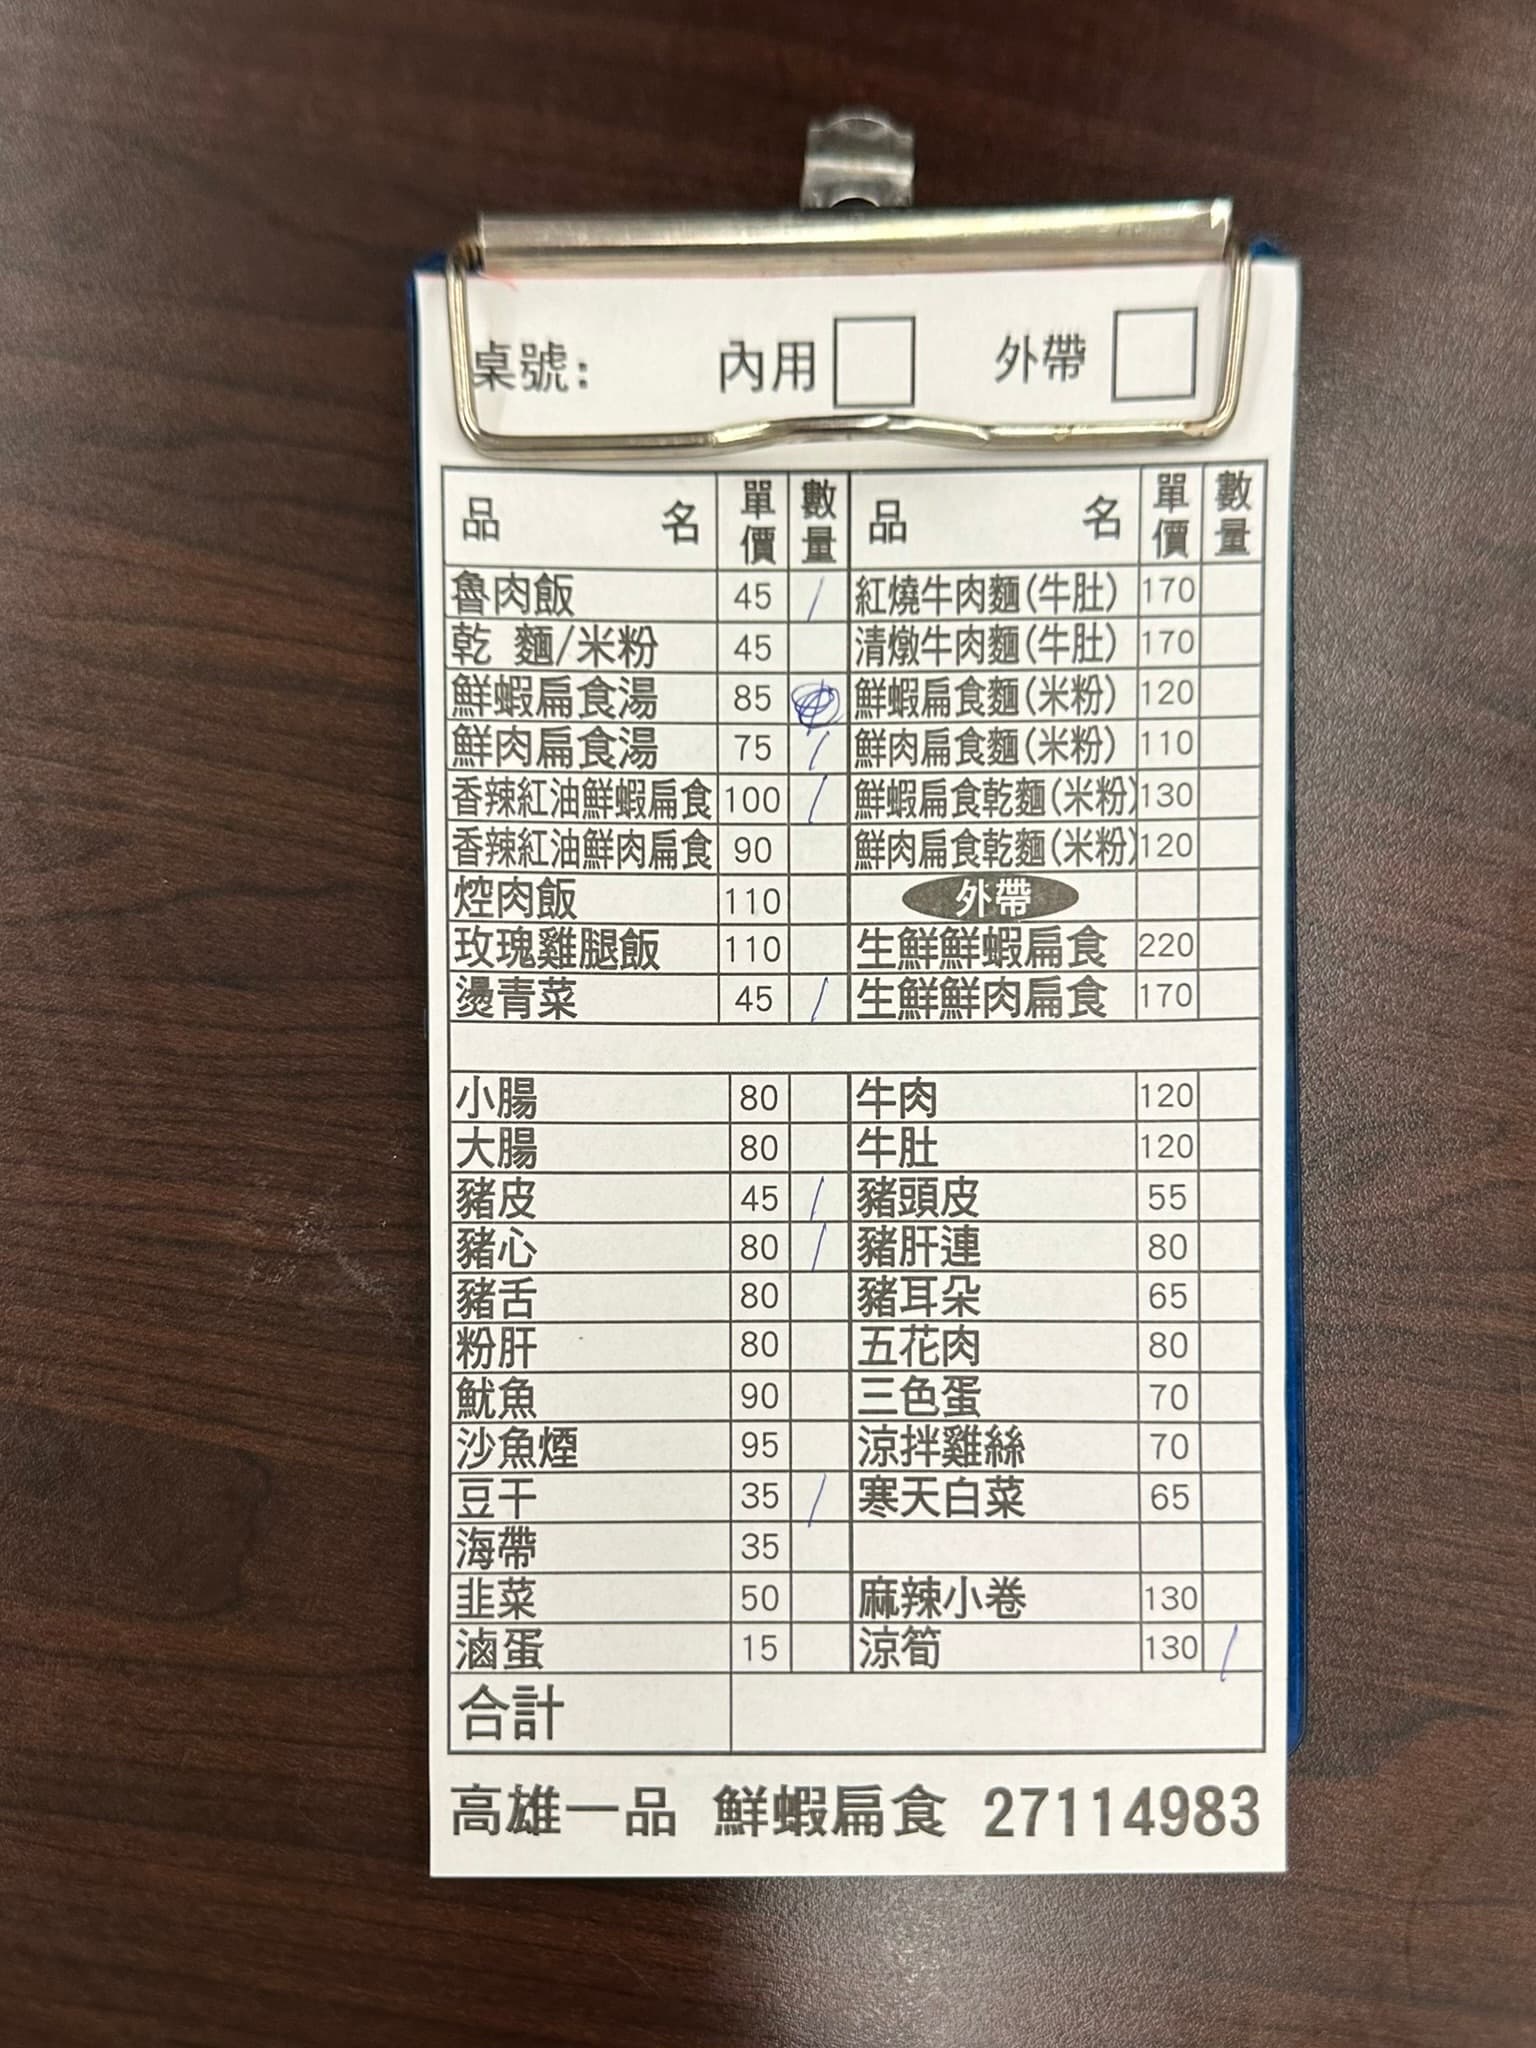 桌號: 內用 外帶
品 名 單價 數量 品 名 單價 數量
魯肉飯 45 / 紅燒牛肉麵(牛肚) 170
乾 麵/米粉 45 清燉牛肉麵(牛肚) 170
鮮蝦扁食湯 85 鮮蝦扁食麵(米粉) 120
鮮肉扁食湯 75 / 鮮肉扁食麵(米粉) 110
香辣紅油鮮蝦扁食 100 / 鮮蝦扁食乾麵(米粉) 130
香辣紅油鮮肉扁食 90 鮮肉扁食乾麵(米粉) 120
焢肉飯 110 外帶
玫瑰雞腿飯 110 生鮮鮮蝦扁食 220
燙青菜 45 / 生鮮鮮肉扁食 170
小腸 80 牛肉 120
大腸 80 牛肚 120
豬皮 45 / 豬頭皮 55
豬心 80 / 豬肝連 80
豬舌 80 豬耳朵 65
粉肝 80 五花肉 80
魷魚 90 三色蛋 70
沙魚煙 95 涼拌雞絲 70
豆干 35 / 寒天白菜 65
海帶 35
韭菜 50 麻辣小卷 130
滷蛋 15 涼筍 130 /
合計
高雄一品 鮮蝦扁食 27114983